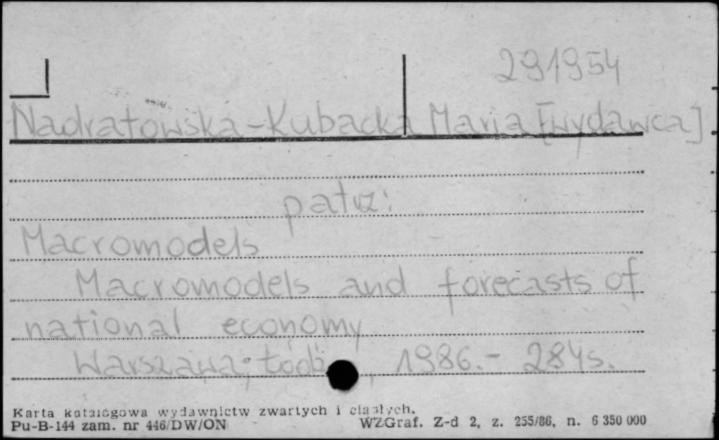 291954
Nadratowska-Kubacka Maria [wydawca]
patrz:
Macromodels
Macromodels and forecasts of
national economy
Warszawa; Łódź, 1986.- 284s.
Karta katalogowa wydawnictw zwartych i ciągłych.
Pu-B-144 zam. nr 446/DW/ON WZGraf. Z-d 2, z. 255/86, n. 6 350 000